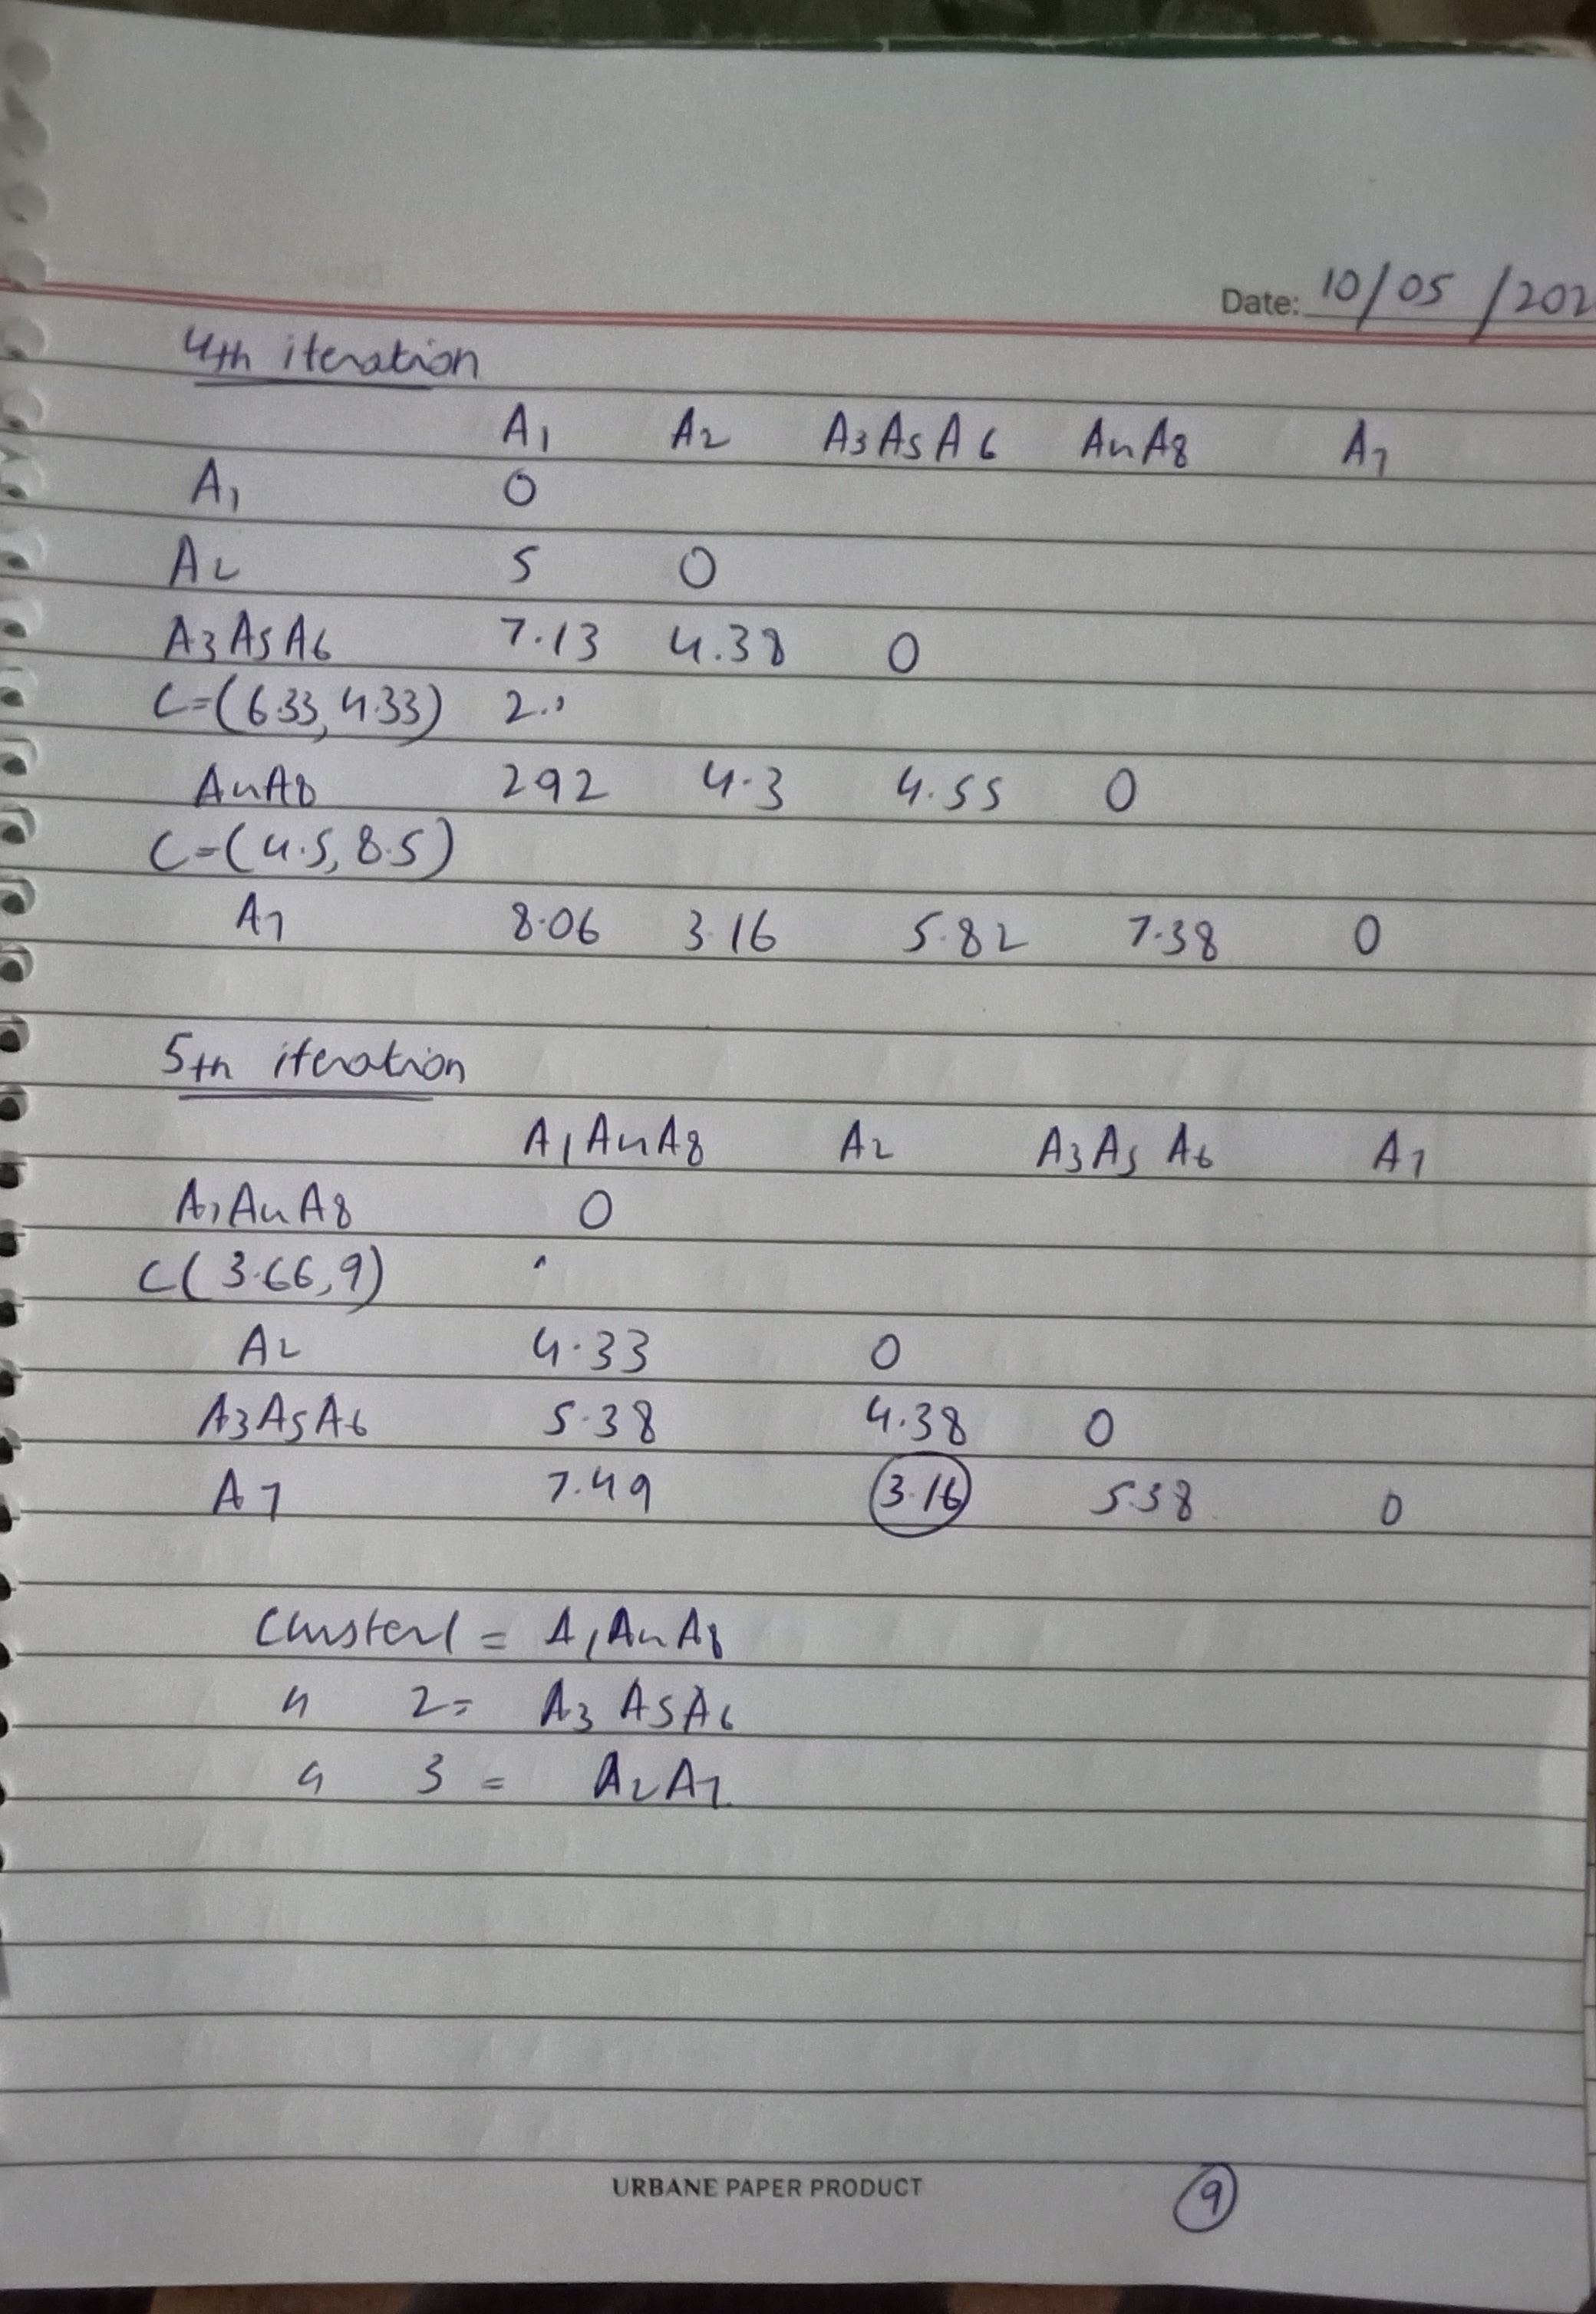 Date: 10/05/202
4th iteration
A1 A2 A3A5A6 A4A8 A7
A1 0
A2 5 0
A3A5A6 7.13 4.38 0
C=(6.33, 4.33) 2..
A4A8 292 4.3 4.55 0
C=(4.5, 8.5)
A7 8.06 3.16 5.82 7.38 0
5th iteration
A1A4A8 A2 A3A5 A6 A7
A1A4A8 0
C(3.66, 9)
A2 4.33 0
A3A5A6 5.38 4.38 0
A7 7.49 3.16 5.38 0
Cluster1 = A1A4A8
" 2= A3 A5A6
" 3 = A2A7
URBANE PAPER PRODUCT
9